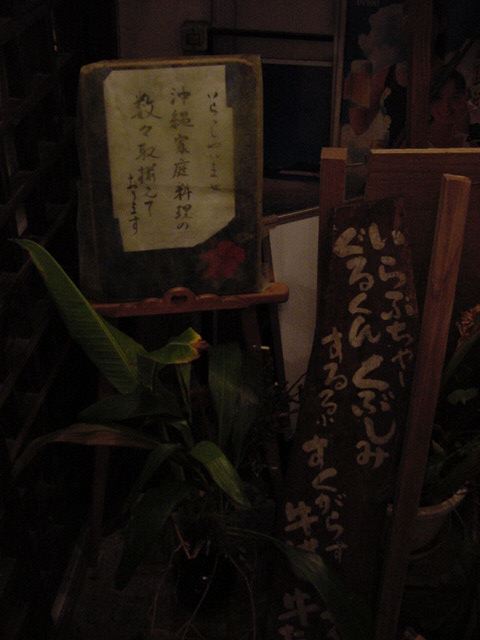 いらっしゃいませ
沖縄家庭料理の
数々取揃えて
おります
いらぶちゃー
ぐるくん くぶしみ
するるー すくがらす
牛
牛